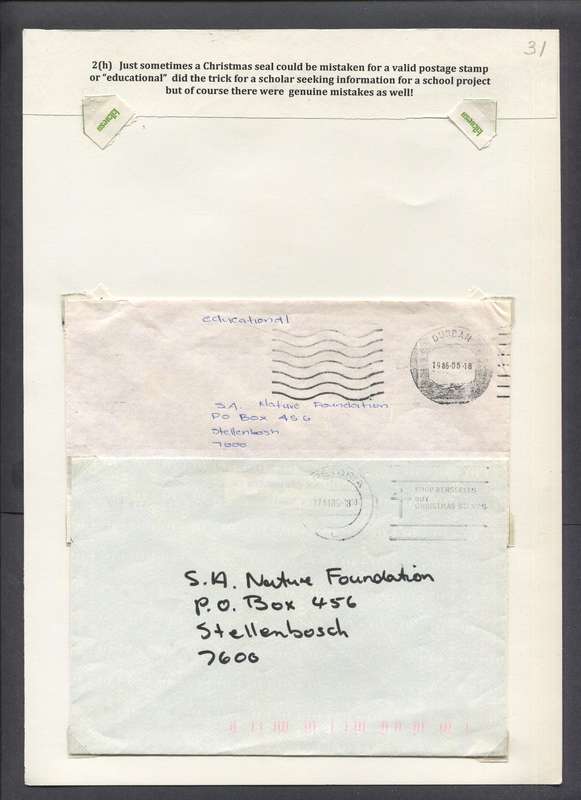 31
2(h) Just sometimes a Christmas seal could be mistaken for a valid postage stamp
or "educational" did the trick for a scholar seeking information for a school project
but of course there were genuine mistakes as well!
educational
DURBAN
S.A. Nature Foundation
PO Box 456
Stellenbosh
7600
BUY
CHRISTMAS
S.A. Nature Foundation
P.O. Box 456
Stellenbosch
7600